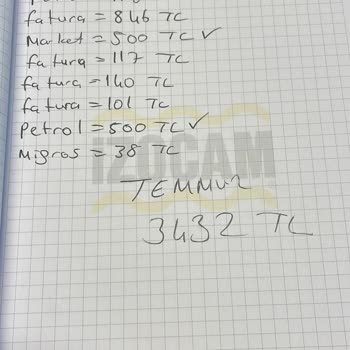 fatura = 846 TL
Market = 500 TL ✓
fatura = 117 TL
fatura = 140 TL
fatura = 101 TL
Petrol = 500 TL ✓
Migros = 38 TL
İZOCAM
TEMMUZ
3432 TL